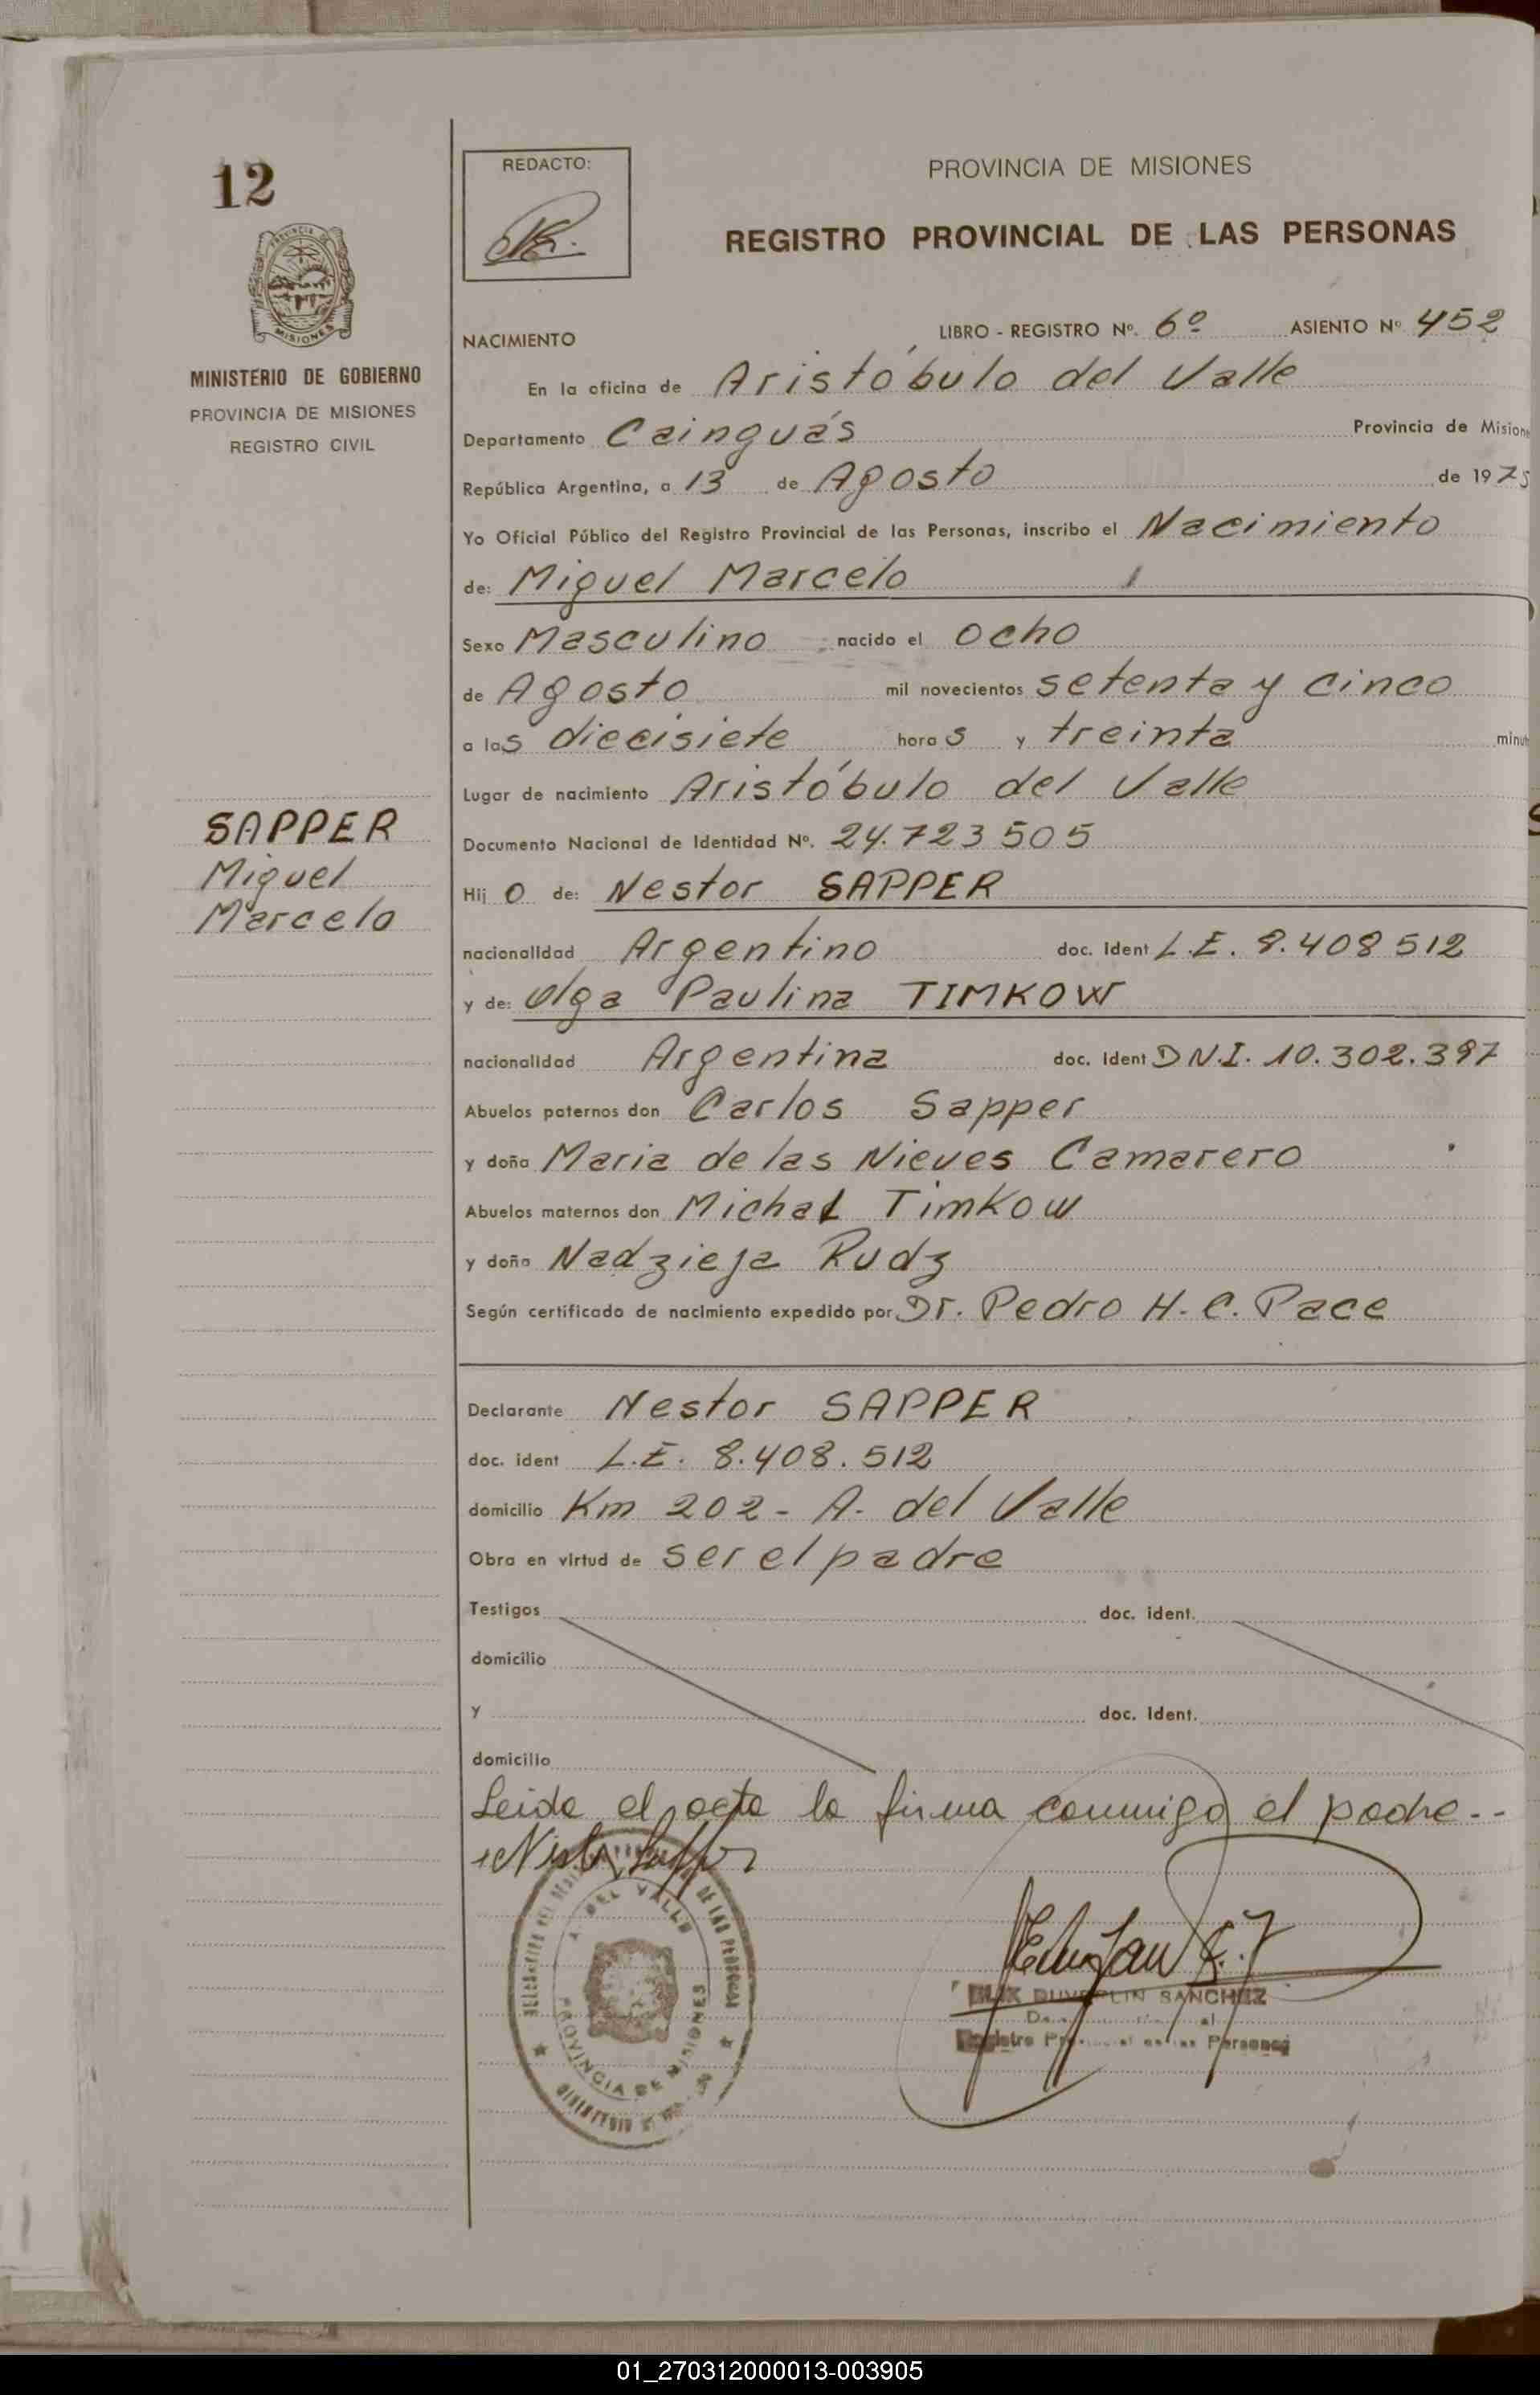 12
PROVINCIA DE
MISIONES
MINISTERIO DE GOBIERNO
PROVINCIA DE MISIONES
REGISTRO CIVIL
SAPPER
Miguel
Marcelo
REDACTO:
PROVINCIA DE MISIONES
REGISTRO PROVINCIAL DE LAS PERSONAS
NACIMIENTO LIBRO - REGISTRO Nº. 6º ASIENTO Nº 452
En la oficina de Aristóbulo del Valle
Departamento Cainguás Provincia de Mision
República Argentina, a 13 de Agosto de 1975
Yo Oficial Público del Registro Provincial de las Personas, inscribo el Nacimiento
de: Miguel Marcelo
Sexo Masculino nacido el ocho
de Agosto mil novecientos setenta y cinco
a las diecisiete horas y treinta minut
Lugar de nacimiento Aristóbulo del Valle
Documento Nacional de Identidad Nº. 24.723505
Hij o de: Nestor SAPPER
nacionalidad Argentino doc. Ident L.E. 8.408512
y de: Olga Paulina TIMKOW
nacionalidad Argentina doc. Ident D.N.I. 10.302.397
Abuelos paternos don Carlos Sapper
y doña Maria de las Nieves Camarero
Abuelos maternos don Michal Timkow
y doña Nadzieja Rudz
Según certificado de nacimiento expedido por Dr. Pedro H. C. Pace
Declarante Nestor SAPPER
doc. ident L.E. 8.408.512
domicilio Km 202 - A. del Valle
Obra en virtud de ser el padre
Testigos doc. ident.
domicilio
y doc. Ident.
domicilio
Leida el acta la firma conmigo el padre--
Nestor Sapper
A. DEL VALLE
DE LAS PERSONAS
PROVINCIA DE MISIONES
SANCHEZ
Personas
01_270312000013-003905